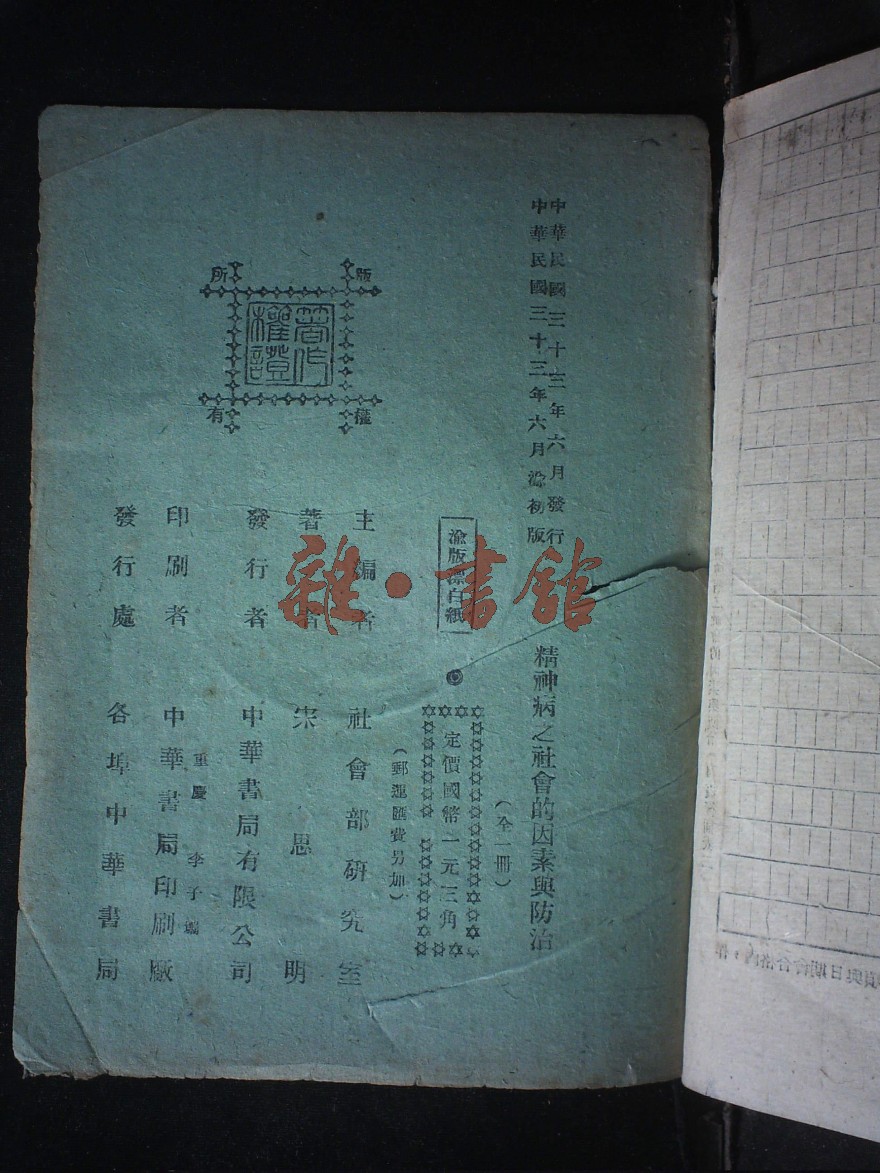 中華民國三十三年六月發行
中華民國三十三年六月渝初版
精神病之社會的因素與防治
(全一冊)
渝版漂白紙
定價國幣一元三角
(郵運匯費另加)
主編者 社會部研究室
著者 宋思明
發行者 中華書局有限公司
重慶 李子壩
印刷者 中華書局印刷廠
發行處 各埠中華書局
版權所有
著作權證
雜·書館